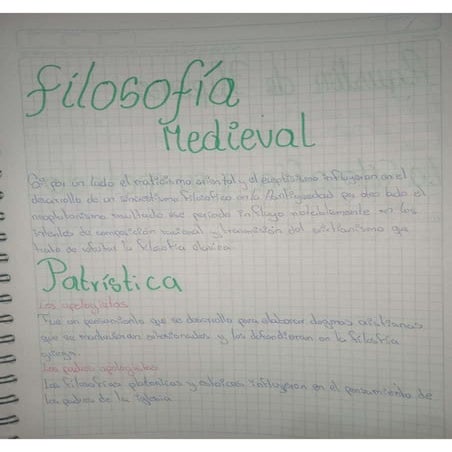 Filosofía
Medieval
Si por un lado el misticismo oriental y el escepticismo influyeron en el
desarrollo de un sincretismo filosófico en la Antigüedad por otro lado el
neoplatonismo resultado ese periodo influyo notoriamente en los
intentos de composición racional y transmisión del cristianismo que
trato de la filosofía clasica
Patrística
Los apologistas
Fue un pensamiento que se desarrollo para elaborar dogmas cristianos
que se y los defendieron en la filosofía
griega.
Los padres apologistas
Las filosofías platonicas y estoicas influyeron en el pensamiento de
los padres de la iglesia